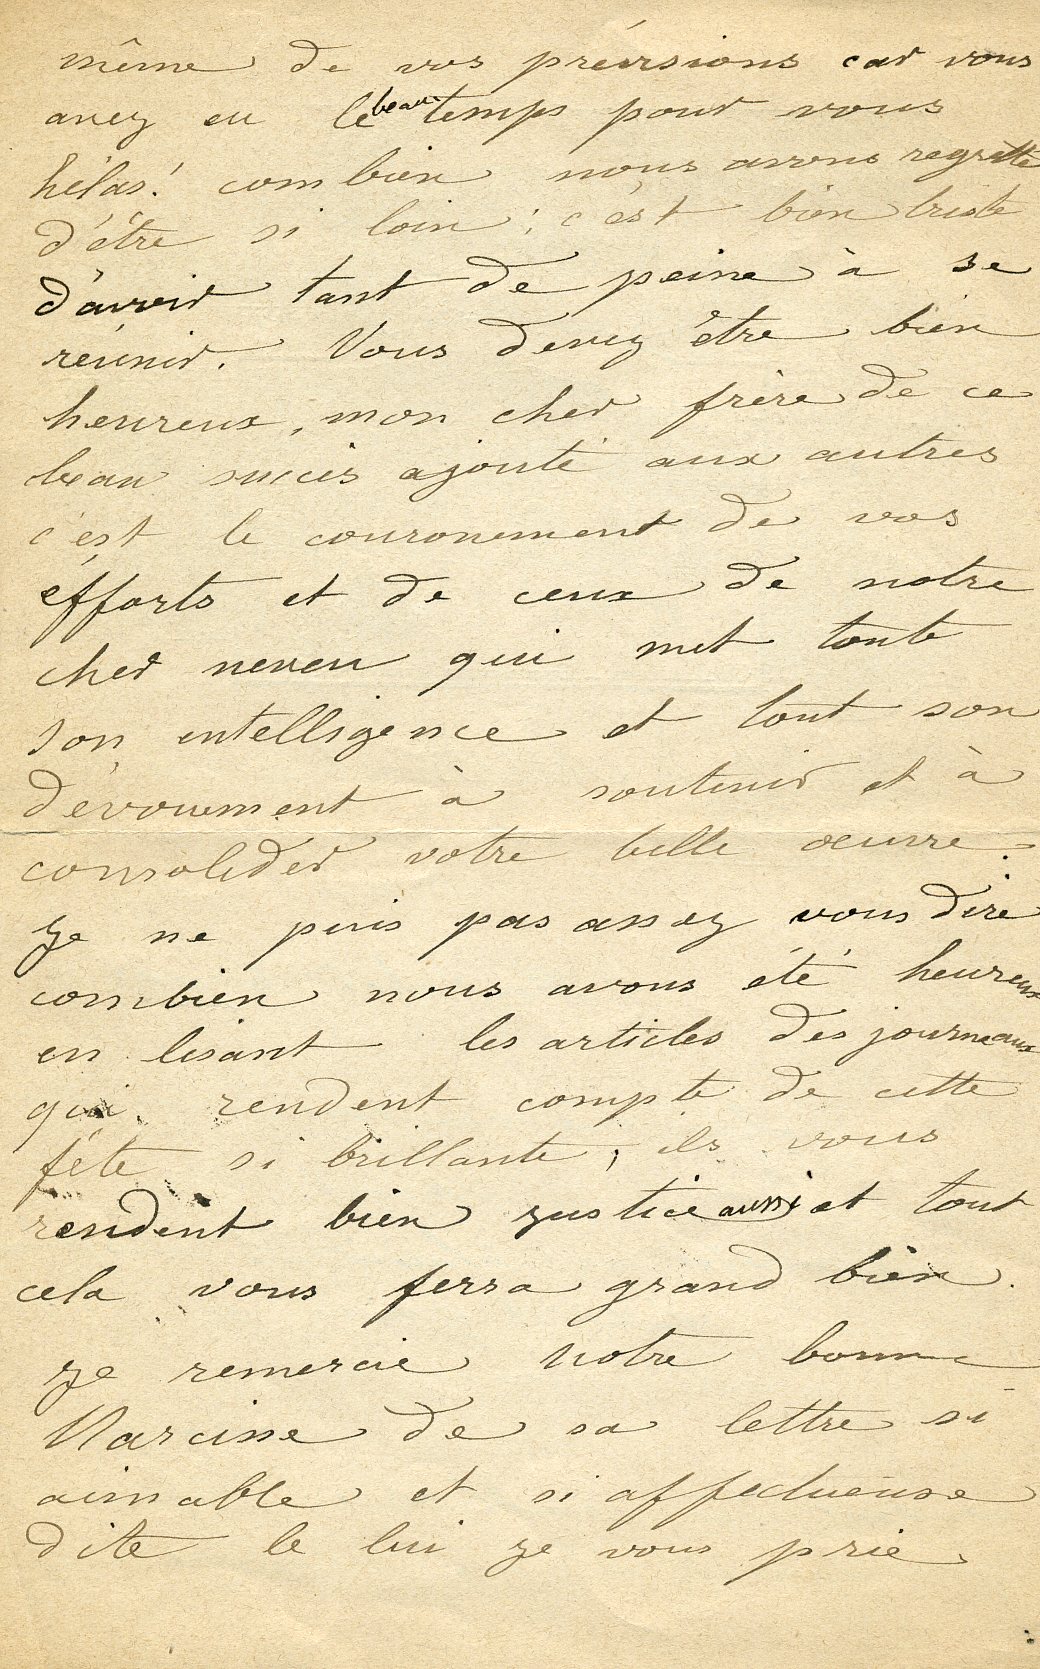 même de vos prévisions car vous
avez eu le beau temps pour vous
hélas! combien nous avons regretté
d'être si loin; c'est bien triste
d'avoir tant de peine à se
réunir. Vous devez être bien
heureux, mon cher frère de ce
beau succès ajouté aux autres
c'est le couronement de vos
éfforts et de ceux de notre
cher neveu qui met toute
son intelligence et tout son
dévouement à soutenir et à
consolider votre belle œuvre.
Je ne puis pas assez vous dire
combien nous avons été heureux
en lisant les articles des journeaux
qui rendent compte de cette
fête si brillante, ils vous
rendent bien justice aussi et tout
cela vous ferra grand bien.
Je remercie notre bonne
Narcisse de sa lettre si
aimable et si affectueuse
dite le lui je vous prie.